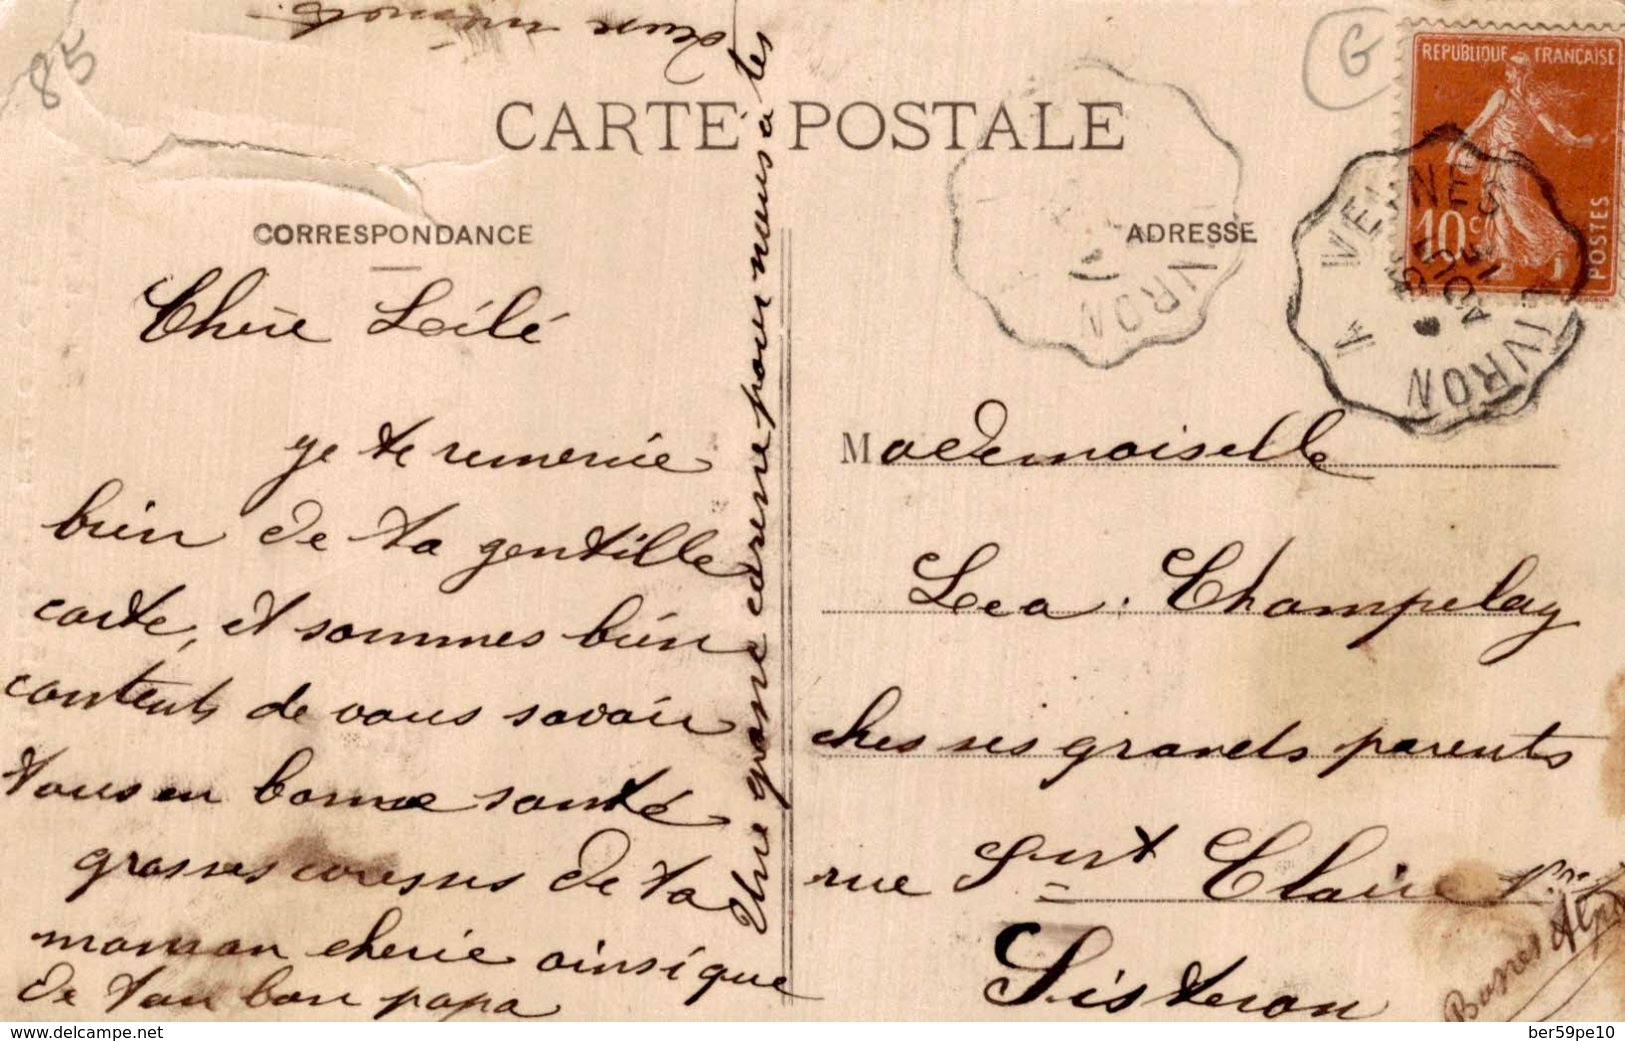 85
G
CARTE POSTALE
CORRESPONDANCE
ADRESSE
REPUBLIQUE FRANÇAISE
10c
POSTES
VEYNES
IVRON
IVRON
Chère Loilé
je te remercie
bien de ta gentille
carte, et sommes bien
contents de vous savoir
tous en bonne santé
grosses caresses de ta
maman cherie ainsi que
de ton bon papa
Une grosse caresse pour nous a tes
Mademoiselle
Lea Champelay
ches ses grands parents
rue Sint Claire
Sisteron
Basses Alpes
ber59pe10